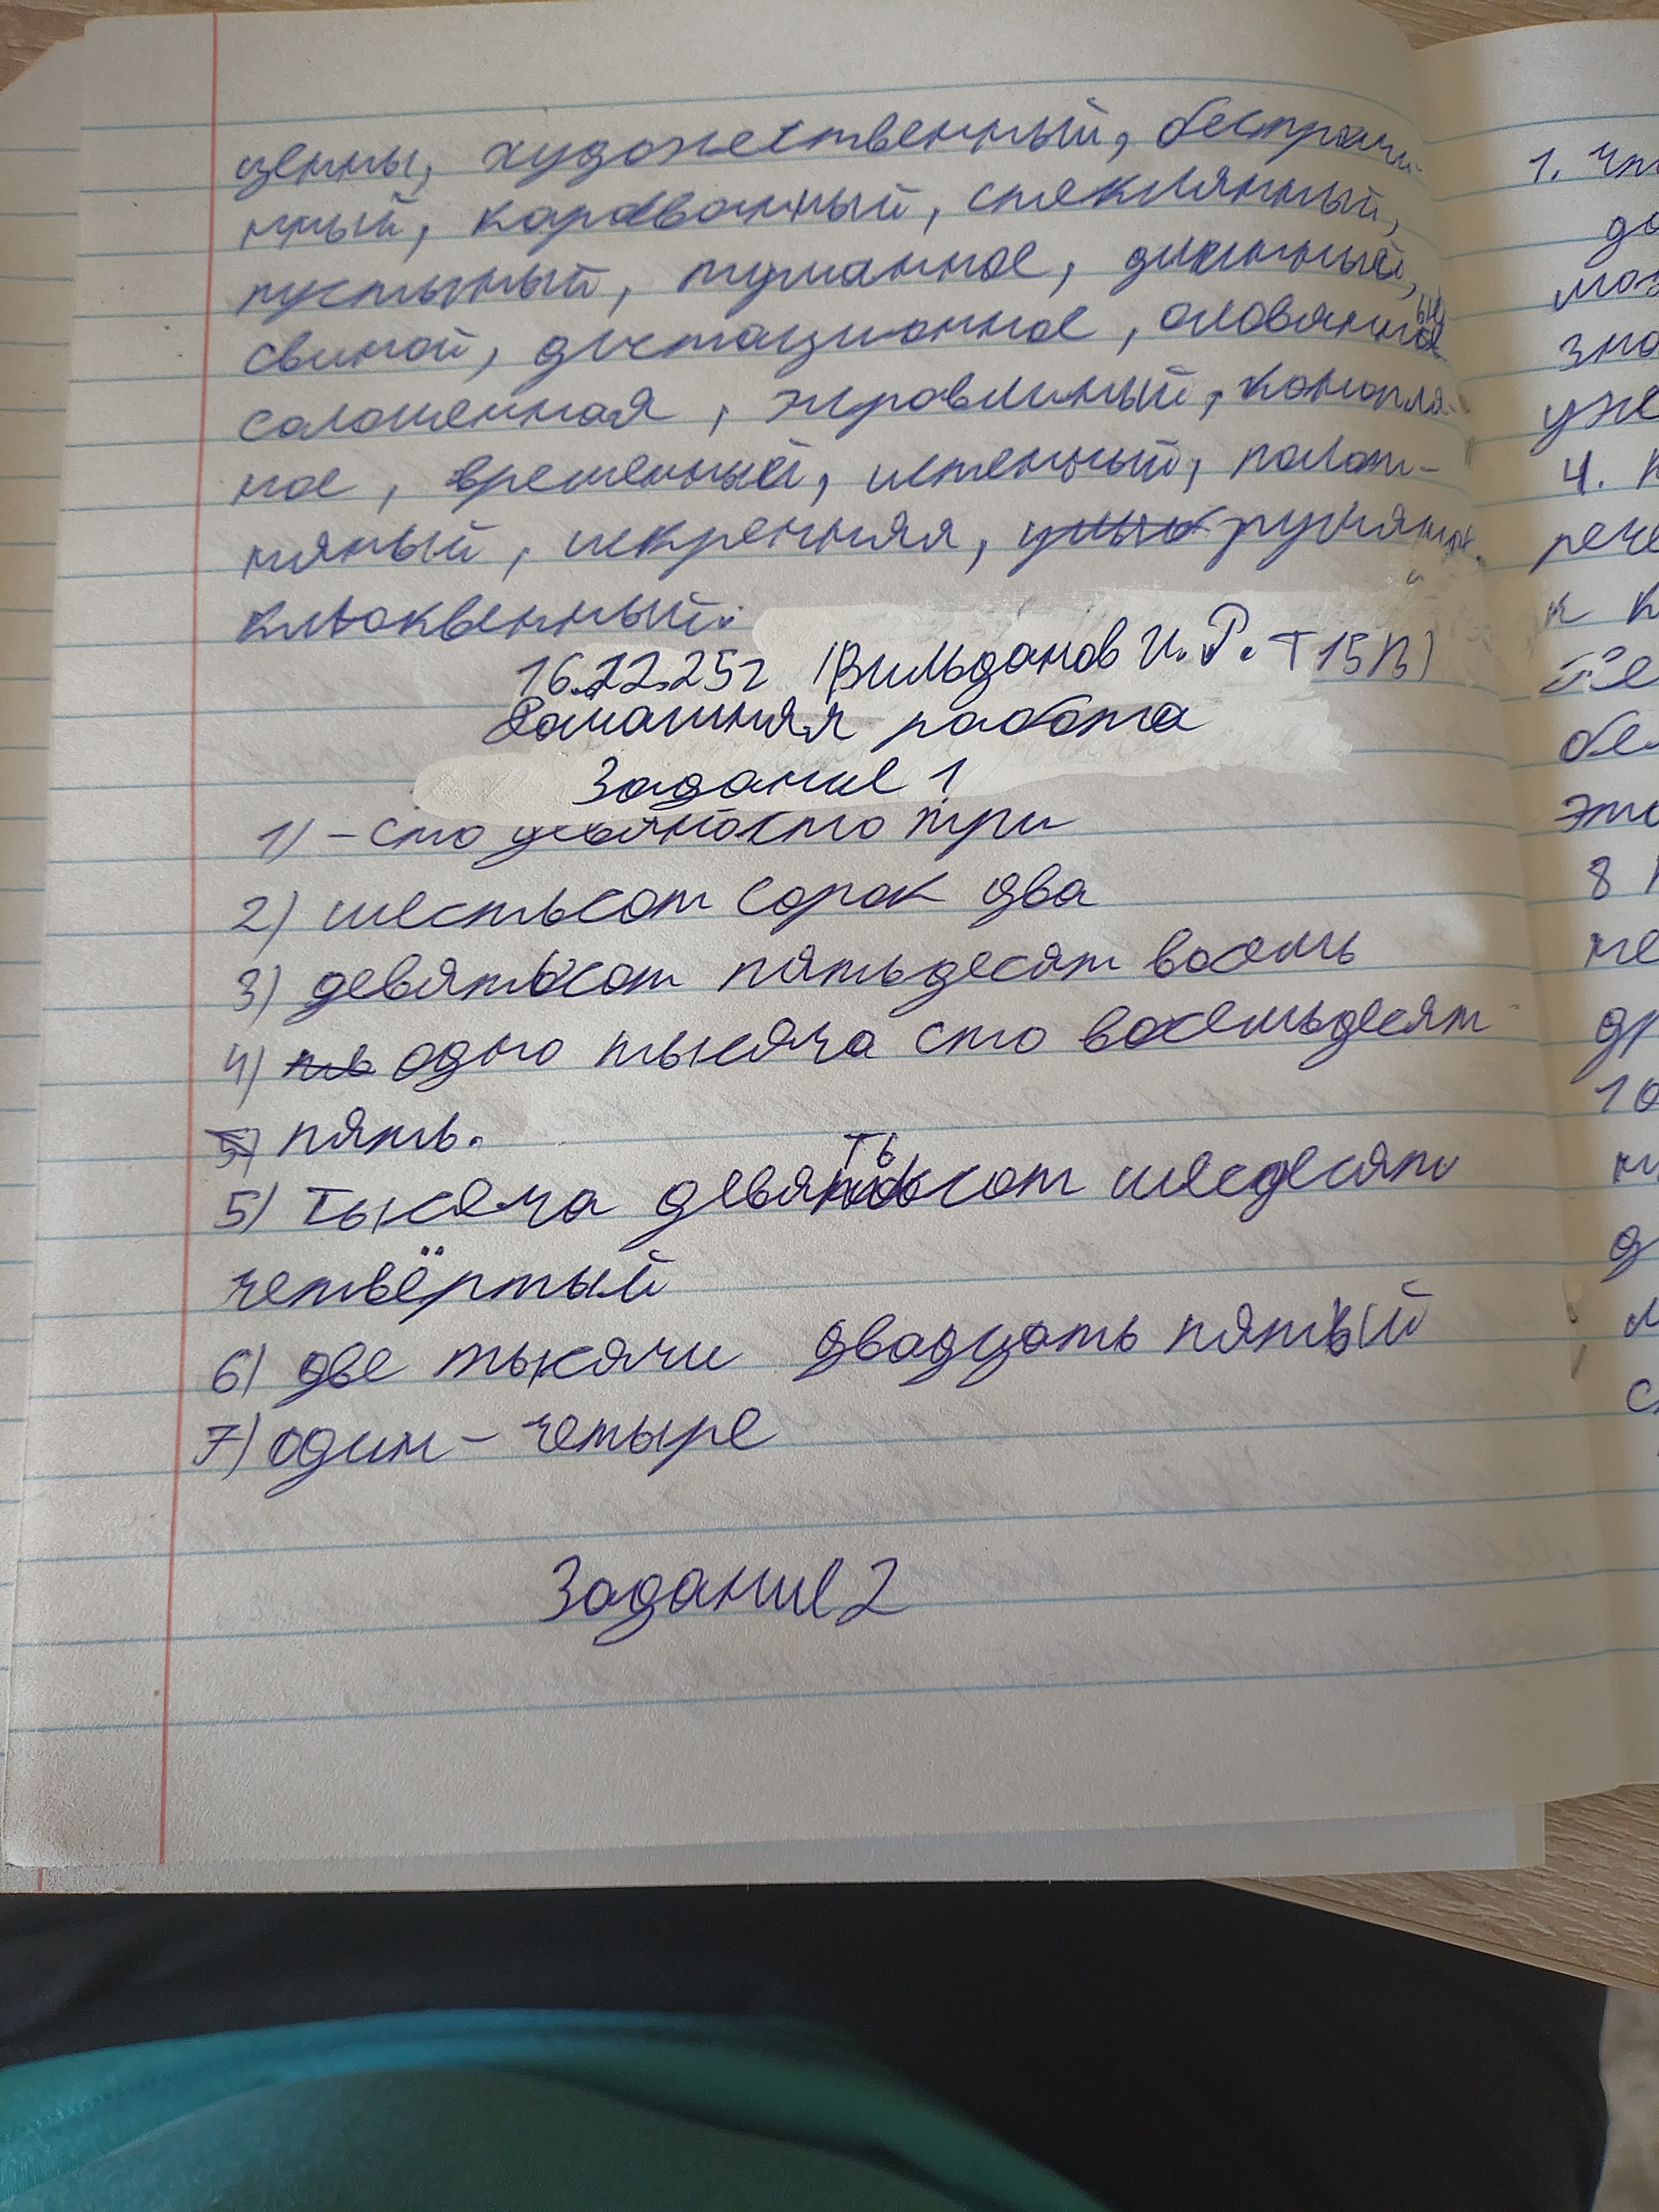 ценны, художественный, бестрачи
нный, караванный, стяклянный,
пустыный, туманное, длинный,
свиной, дистационное, оловянные
соломенная, журавлиный, конопля-
ное, временный, истенный, полот-
няный, искренняя, румяное,
клюквенный.
16.12.25г (Вильданов И.Р. Т15П)
Домашняя работа
Задание 1
1) – сто девяносто три
2) шестьсот сорок два
3) девятьсот пятьдесят восемь
4) одно тысяча сто восемьдесят
пять.
5) тысяча девятьсот шесдесят
четвёртый
6) две тысячи двадцать пятый
7) один – четыре
Задание 2
1. что
до
моз
зна
уже
4. п
рече
к п
бел
это
8
не
др
10
д